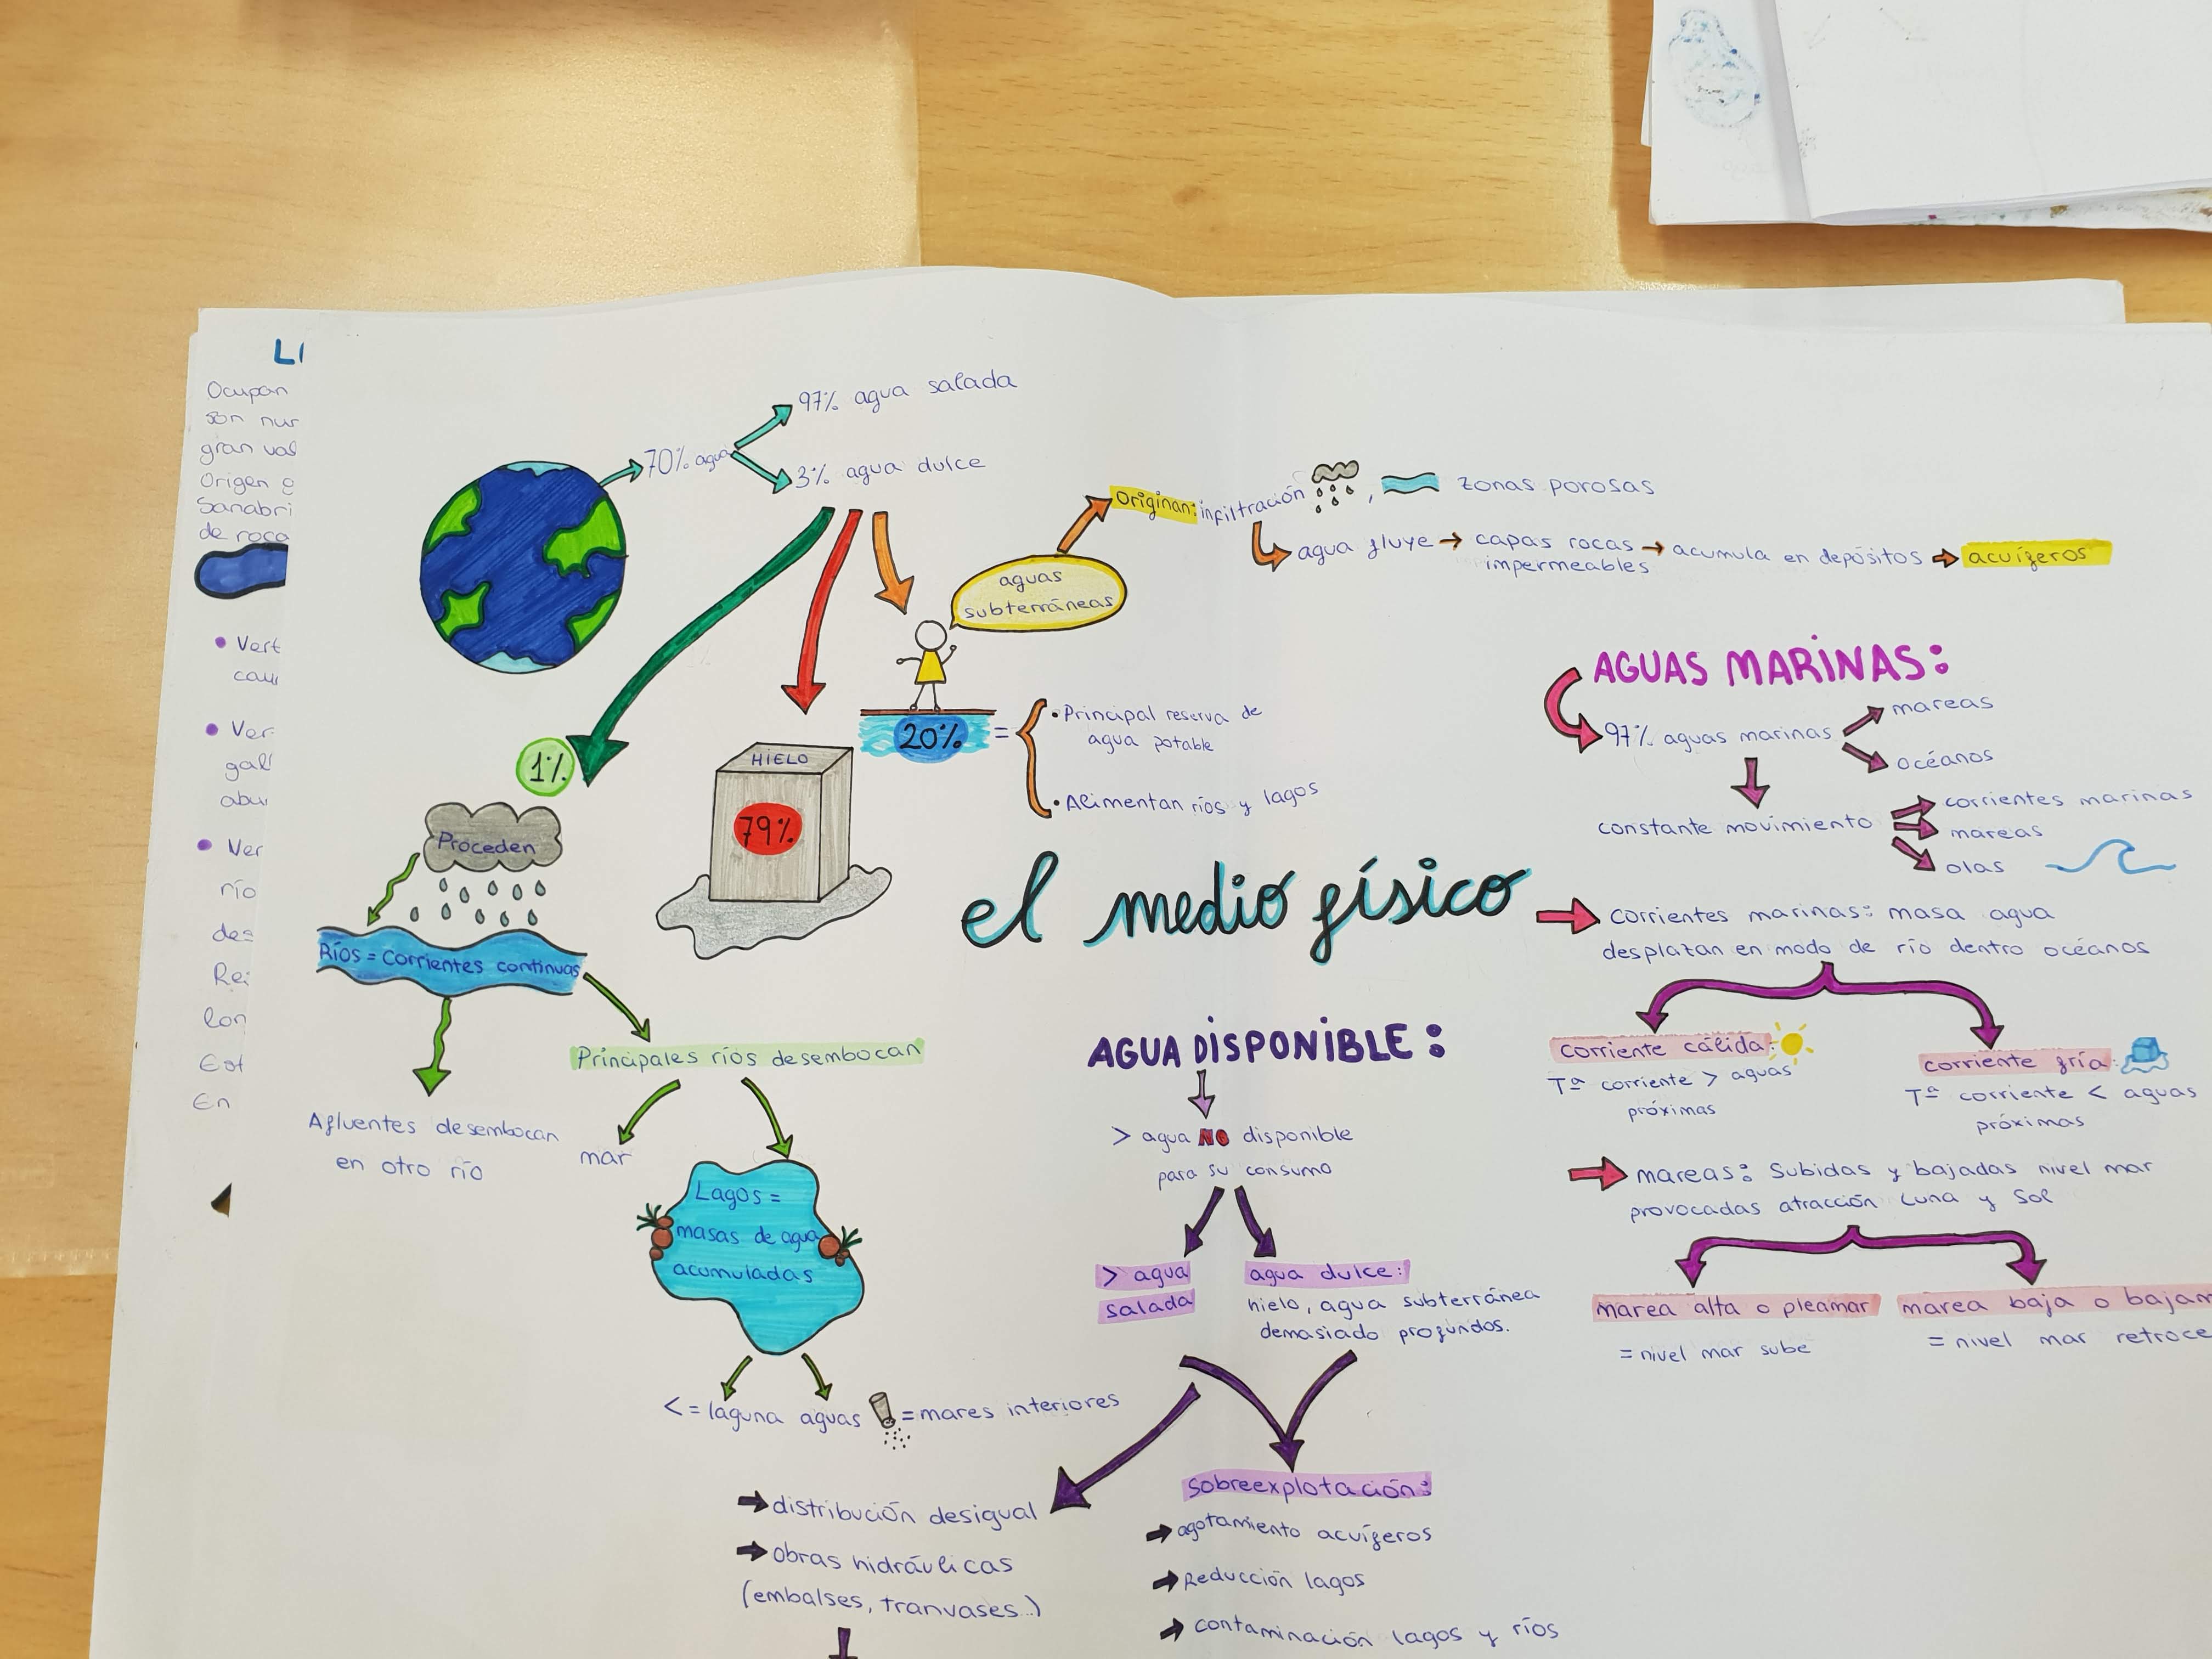 LI
Ocupan
son nur
gran val
Origen
Sanabri
de roca
• Vert
• Ver
gal
abu
• Ver
río
des
Re
lon
Est
En
97% agua salada
70% agua
3% agua dulce
aguas
subterráneas
Originan: infiltración , zonas porosas
agua fluye → capas rocas → acumula en depósitos → acuíferos
impermeables
1%
HIELO
79%
20% =
• Principal reserva de
agua potable
• Alimentan ríos y lagos
Proceden
Ríos = Corrientes continuas
Afluentes desembocan
en otro río
Principales ríos desembocan
mar
Lagos =
masas de agua
acumuladas
< = laguna
aguas = mares interiores
el medio físico
AGUA DISPONIBLE:
> agua NO disponible
para su consumo
> agua
salada
agua dulce:
hielo, agua subterránea
demasiado profundos.
→ distribución desigual
→ obras hidráulicas
(embalses, tranvases...)
Sobreexplotación:
→ agotamiento acuíferos
→ Reducción lagos
→ contaminación lagos y ríos
AGUAS MARINAS:
97% aguas marinas
mareas
océanos
constante movimiento
corrientes marinas
mareas
olas
corrientes marinas: masa agua
desplazan en modo de río dentro océanos
corriente cálida:
Tª corriente > aguas
próximas
corriente fría:
Tª corriente < aguas
próximas
mareas: Subidas y bajadas nivel mar
provocadas atracción Luna y Sol
marea alta o pleamar
= nivel mar sube
marea baja o bajam
= nivel mar retroce